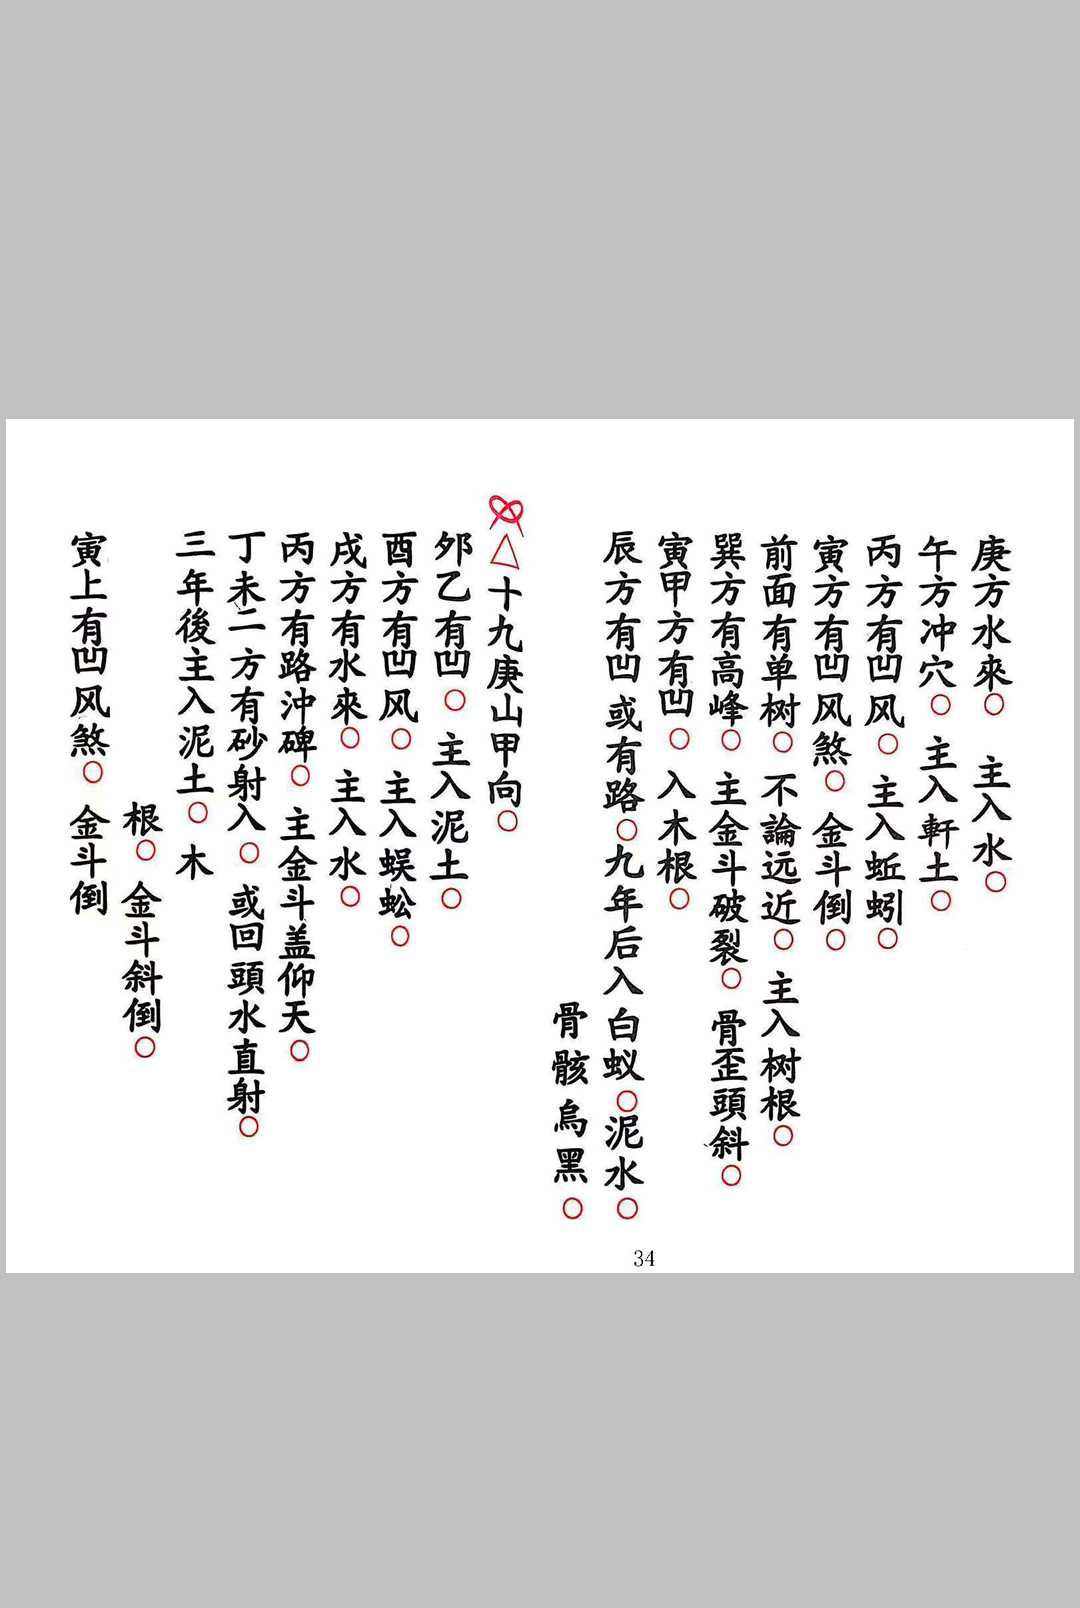 庚方水來○ 主入水○
午方冲穴○ 主入軒土○
丙方有凹风○ 主入蚯蚓○
寅方有凹风煞○ 金斗倒○
前面有单树○ 不論远近○ 主入树根○
巽方有高峰○ 主金斗破裂○ 骨歪頭斜○
寅甲方有凹○ 入木根○
辰方有凹或有路○九年后入白蚁○泥水○
骨骸烏黑○
△十九庚山甲向○
夘乙有凹○ 主入泥土○
酉方有凹风○ 主入蜈蚣○
戌方有水來○ 主入水○
丙方有路沖碑○ 主金斗盖仰天○
丁未二方有砂射入○ 或回頭水直射○
三年後主入泥土○ 木
根○ 金斗斜倒○
寅上有凹风煞○ 金斗倒
34